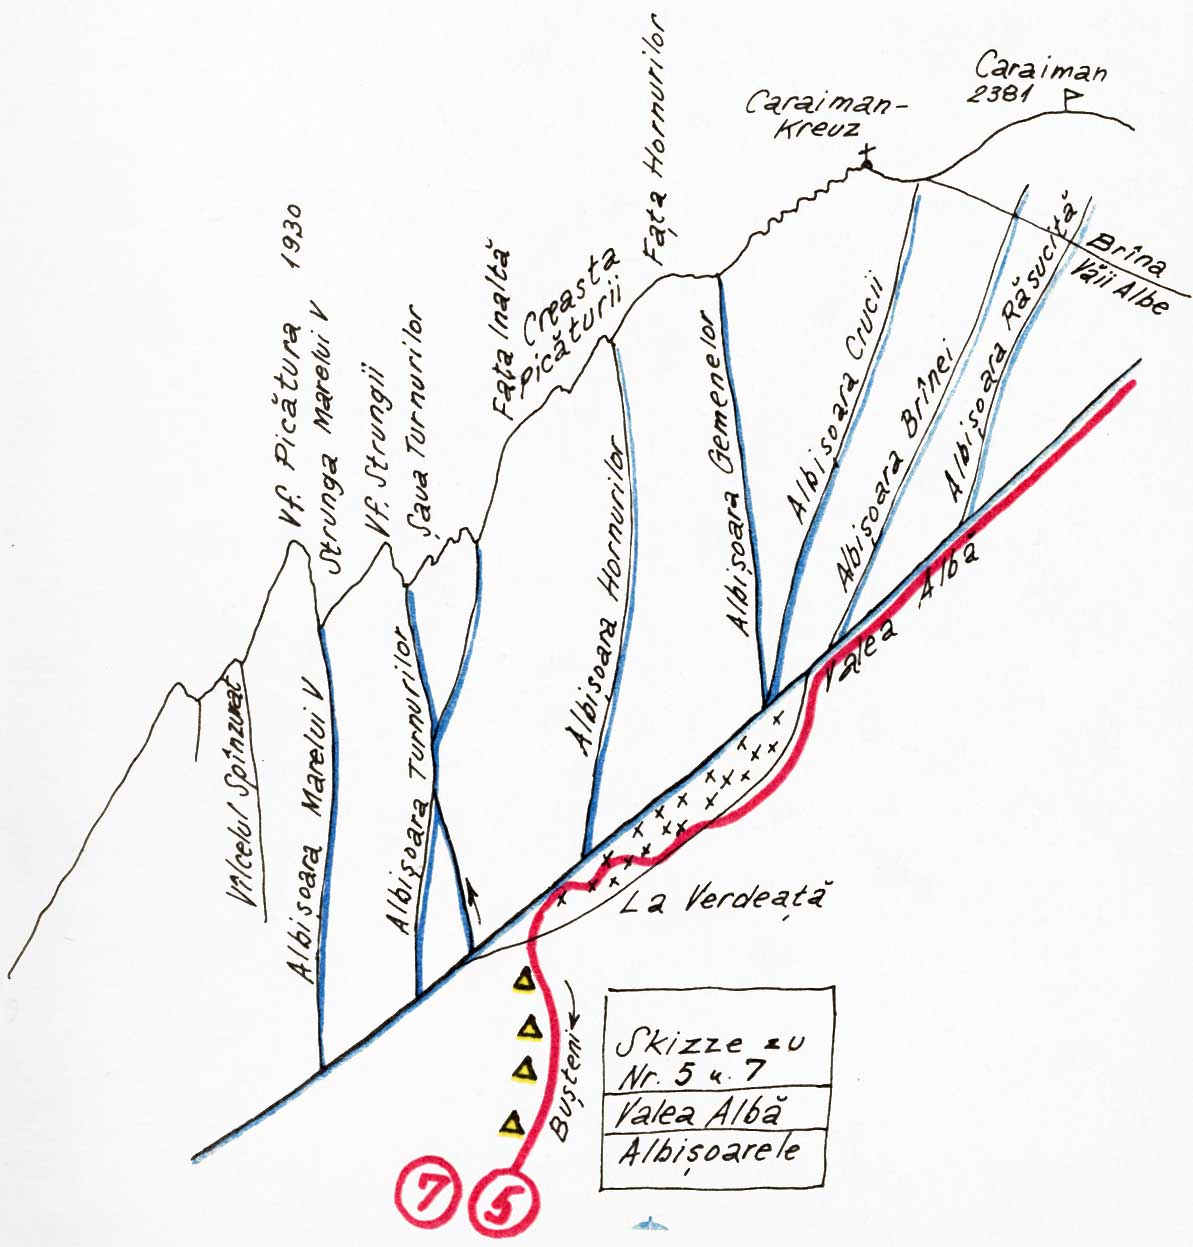 Caraiman
2381
Caraiman-
Kreuz
Fața Hornurilor
Vf. Picătura 1930
Strunga Marelui V
Vf. Strungii
Șaua Turnurilor
Fața Inaltă
Creasta
Picăturii
Brîna
Văii Albe
Albișoara Răsucită
Albișoara Brînei
Albișoara Crucii
Albișoara Gemenelor
Albișoara Hornurilor
Albișoara Turnurilor
Albișoara Marelui V
Vîlcelul Spînzurat
Valea Albă
La Verdeață
Bușteni
Skizze zu
Nr. 5 u. 7
Valea Albă
Albișoarele
7
5